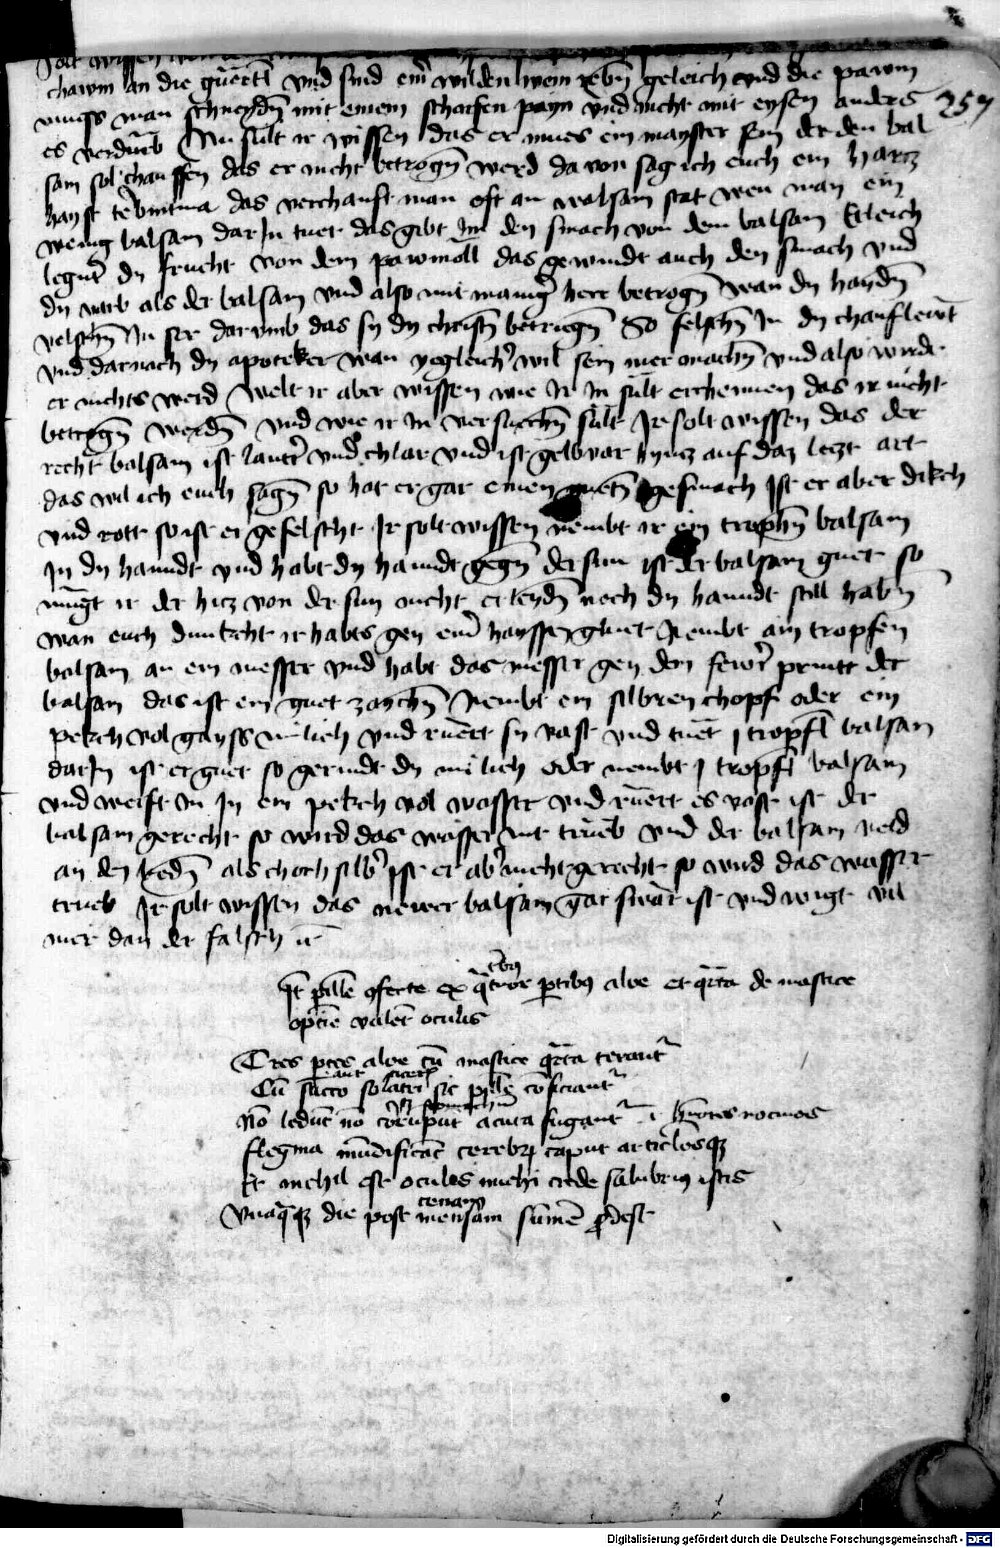 solt wissen
chawm an die güertl vnd sind eim wilden wein rebm geleich vnd die pawm
muess man schneydn mit einem scharfen payn vnd nicht mit eysen anders
257
es verdürb Nu sült ir wissen das er mues ein mayster sein der den bal
sam sol chauffen das er nicht betrogn werd da von sag ich euch ein harcz
hayst terbintina das verchauft man oft an walsam stat wen man ein
wenig balsam dar In tuet das gibt Im den smach von dem balsam Etleich
legnt dy frucht von dem pawmoll das gewindt auch den smach vnd
dy varb als der balsam vnd also wirt maniger herr betrogn wan dy haydn
velschn In ser darvmb das sy dy christn betriegn So felschn In dy chaufleüt
vnd darnach dy apoteker wan yegleicher wil sein mer machn vnd also wirdt
er nichts werd Welt ir aber wissen wie Ir In sült erchennen das ir nicht
betrogn werdn vnd wie ir In versuechn sült Ir solt wissen das der
recht balsam ist lautter vnd chlar vnd ist gelbvar hyncz auf daz leczt art
das wil ich euch sagn so hat er gar einen guetn gesmach Ist er aber dikch
vnd rott so ist er gefelscht Ir solt wissen nembt ir ein trophn balsam
In dy hanndt vnd habt dy hanndt gegn der sun ist der balsam guet so
mügt ir der hicz von der sun nicht erleydn noch dy hanndt still habn
wan euch dunkcht ir habts gen eim haysse gluet Nembt ain tropfen
balsam an ein messer vnd habt das messer gen dem fewr prinnt der
balsam das ist ein guet zaychn Nembt ein silbren chopf oder ein
pekch vol gayss milich vnd rüert sy vast vnd tuet j tropfl balsam
darIn ist er guet so gerindt dy milich oder nembt j tropfl balsam
vnd werft in In ein pekch vol wasser vnd rüert es vast ist der
balsam gerecht so wird das wasser nit trüeb vnd der balsam veld
an den bodn als choch silber Ist er aber nicht gerecht so wird das wasser
trueb Ir solt wissen das newer balsam gar swär ist vnd wigt vil
mer dan der falsch
ex partibus aloe et de mastice
valent oculis
Tres partes aloe cum mastice quarta terantur
Cum succo solatri sic pillule conficiantur
Non ledunt non corrumpunt acuta fugantur
flegma mundificant cerebrum caput articulosque
Et nichil est oculis michi crede salubrius istis
Vnaqueque die post mensam prodest
Digitalisierung gefördert durch die Deutsche Forschungsgemeinschaft - DFG